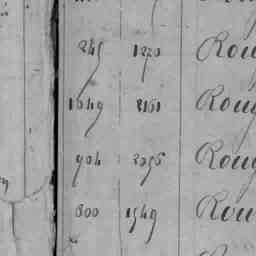 245 1220 Roug
1649 2161 Roug
904 2056 Roug
800 1549 Rou